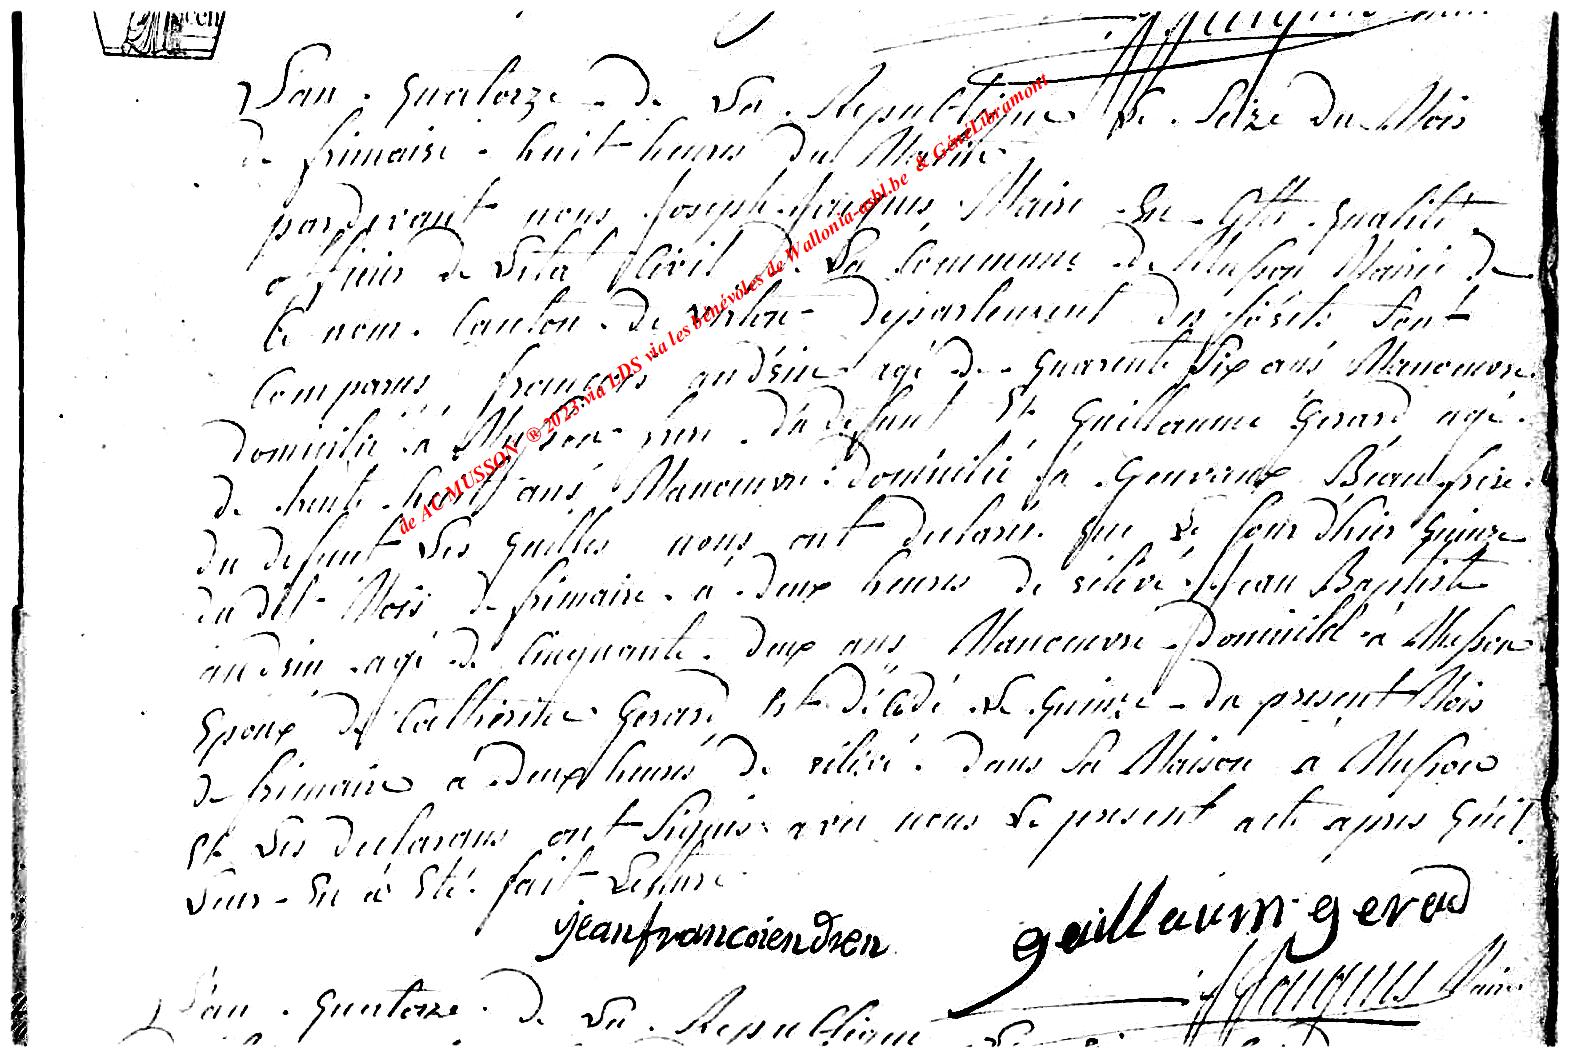 L'an quatorze de La Republique Le Seize du Mois
de frimaire huit heures du Matin
pardevant nous Joseph Jacques Maire En Cette qualité
officier de L'etat Civil de La Commune de Musson Mairie de
Ce nom Canton de Virton département des forêts Sont
Comparus françois andrin agé de quarente Six ans Manoeuvre
domicilié à Musson frere du defunt Et Guillaume Gerard agé
de trente huit ans Manoeuvre domicilié à Gouvaux Beaufrere
du defunt Les quelles nous ont declaré que Le Jour d'hier quinze
du dit Mois de frimaire à deux heures de rélévé Jean Baptiste
andrin agé de Cinquante deux ans Manoeuvre Domicilié à Musson
Epoux de Catherine Gerard Est décédé Le quinze du present Mois
de frimaire à deux heures de rélévé dans Sa Maison à Musson
Et Les declarans ont Signés avec nous Le present acte apres qu'il
Leur En à Eté fait Lecture
jeanfrancoiendren guillaum gerad
JJacques Maire
L'an quatorze de La Republique Le
de AC MUSSON ® 2023 via LDS via les bénévoles de Wallonia-asbl.be & GénéLibramont